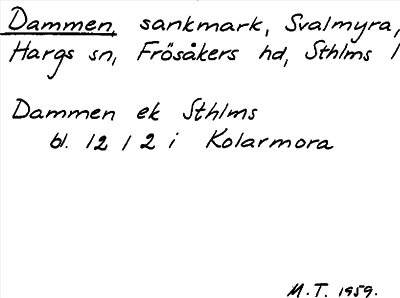 Dammen, sankmark, Svalmyra,
Hargs sn, Frösåkers hd, Sthlms l
Dammen ek Sthlms
bl. 12 1 2 i Kolarmora
M.T. 1959.